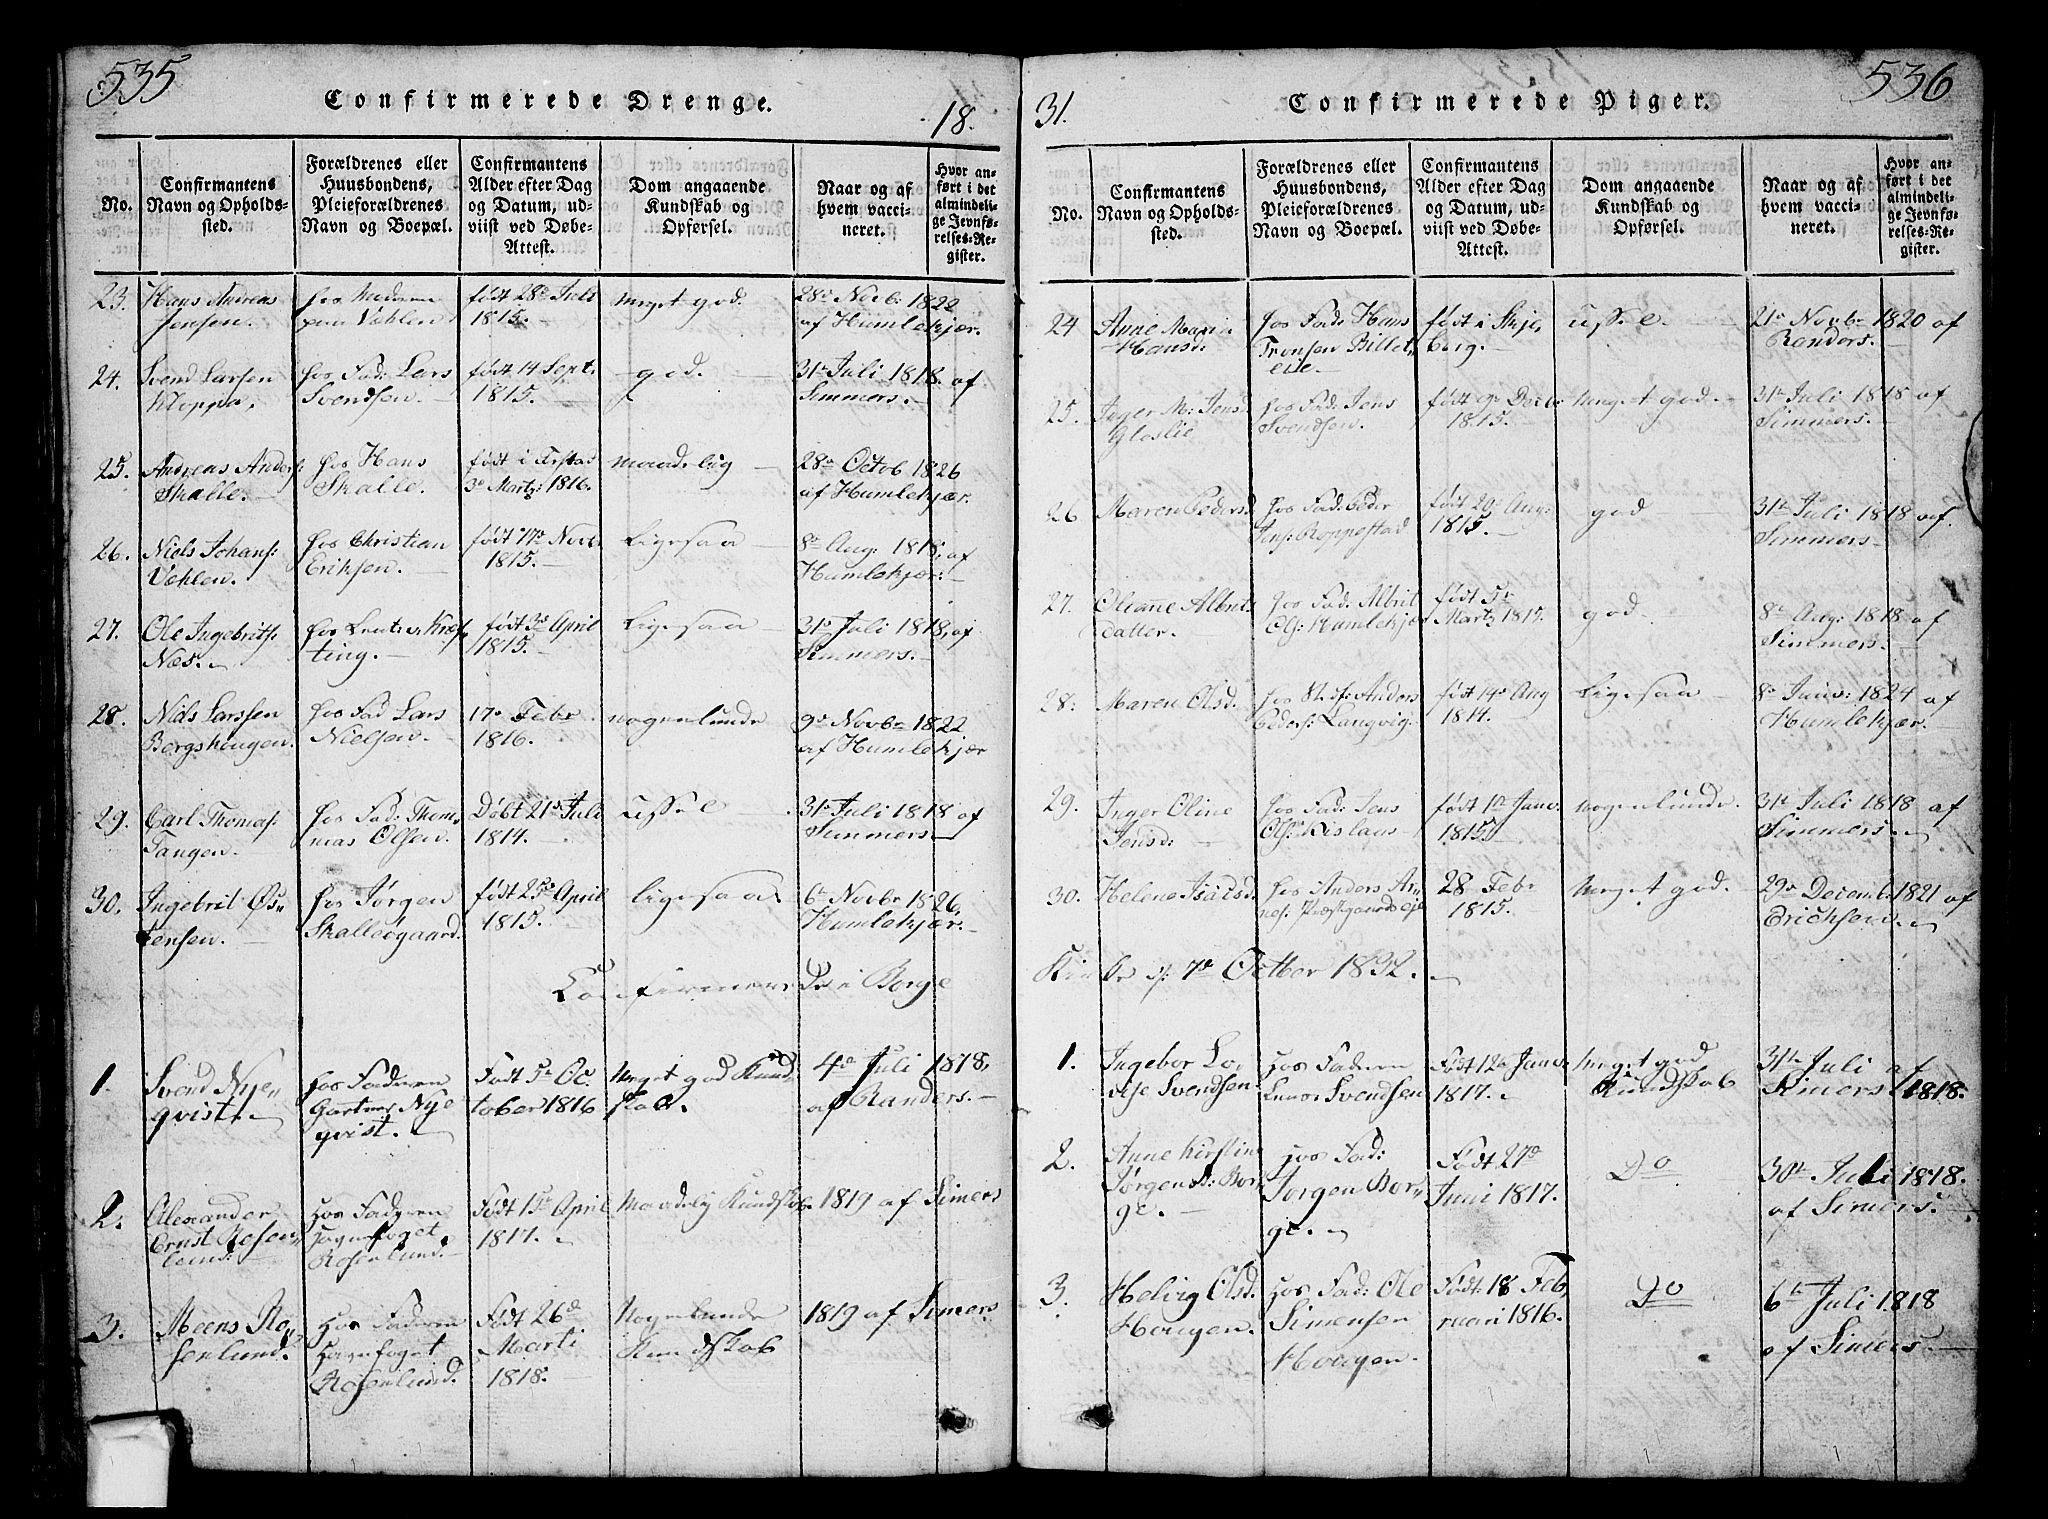 535
Confirmerede Drenge.
18.
No.
Confirmantens
Navn og Opholds-
sted.
Forældrenes eller
Huusbondens,
Pleieforældrenes
Navn og Boepæl.
Confirmantens
Alder efter Dag
og Datum, ud-
viist ved Døbe-
Attest.
Dom angaaende
Kundskab og
Opførsel.
Naar og af
hvem vacci-
neret.
Hvor an-
ført i det
almindeli-
ge Jevnfø-
relses-Re-
gister.
23.
Hans Andreas
Jensen.
hos
Vehlen
født 28de Juli
1815.
meget god.
28de Novb: 1822
af Humlekjær.
24.
Svend Larsen
Kloppa,
hos Fad: Lars
Svendsen.
født 14 Sept:
1815.
god.
31te Juli 1818. af
Simmers.
25.
Andreas Anders:
Skalle.
hos Hans
Skalle.
født i
3de Martz: 1816.
maadelig
28de Octob 1826
af Humlekjær.
26.
Niels Johans:
Vehlen.
hos Christian
Eriksen.
født 17de Nov:
1815.
Ligesaa
8de Aug: 1818, af
Humlekjær:
27.
Ole Ingebrits:
Næs.
hos
ting.
født 3de April
1815.
Ligesaa
31te Juli 1818, af
Simmers.
28.
Niels Larssen
Bergshougen.
hos Fad Lars
Nielsen.
17de Febr
1816.
nogenlunde
9de Novbr 1822
af Humlekjær
29.
Carl Thomas:
Tangen.
hos Fad: Thom,
mas Olsen.
Døbt 21de Juli
1814.
ussel
31te Juli 1818 af
Simmers
30.
Ingebrit Øs,,
tensen.
hos Jørgen
Skallegaard.
født 25de April
1815.
ligesaa
6te Novbr 1826,
Humlekjær.
Confirmerede i Borge
1.
Svend Nye,,
qvist.
hos Faderen
Gartner Nye
qvist.
Født 5te Oc,
tober 1816
Meget god Kund,
skab.
4de Juli 1818,
af Randers.
2.
Alexander
Ernst Rosen,,
lund.
Hos Faderen
foget
Rosenlund.
Født 15de April
1817.
Maadelig Kundskab.
1819 af Simers
3.
Meens Ro,
senlund.
Hos Faderen
foget
Rosenlund.
Født 26de
Marti
1818.
Nogenlunde
Kundskab
1819 af Simers
536
Confirmerede Piger.
31.
No.
Confirmantens
Navn og Opholds-
sted.
Forældrenes eller
Huusbondens,
Pleieforældrenes
Navn og Boepæl.
Confirmantens
Alder efter Dag
og Datum, ud-
viist ved Døbe-
Attest.
Dom angaaende
Kundskab og
Opførsel.
Naar og af
hvem vacci-
neret.
Hvor an-
ført i det
almindeli-
ge Jevnfø-
relses-Re-
gister.
24
Anne Maria
Hansd:
hos Fad: Hans
Tronsen Billet,
eie.
født i Skje,
berg.
ussel.
21de Novbr 1820 af
Randers.
25.
Inger M: Jensd.
Gloslie
hos Fad: Jens
Svendsen.
født 9de Decb:
1815.
meget god.
31te Juli 1818 af
Simmers.
26
Maren Pedersd
hos Fad: Peder
Jens: Roppestad
født 20de Aug:
1815.
god
31te Juli 1818 af.
Simmers.
27.
Oleanne Albrits
datter.
hos Fad: Albrit
Ols: Humlekjær
født 5te
Martz 1815.
god.
8de Aug: 1818 af
Simmers.
28:
Maren Olsd.
hos Stif: Anders
Peders: Langvig.
født 14de Aug
1814.
Ligesaa
8de Juni: 1824 af
Humlekjær.
29.
Inger Oline
Jensd:
hos Fad: Jens
Ols:
født 1te Janv.
1815.
nogenlunde.
31te Juli 1818 af
Simmers.
30.
Helene Isaksd.
hos Anders Ar,
nes: Præstegaards eje
28 Febr
1815.
Meget god.
29de Decemb. 1821 af
Erichsen.
Kirke d: 7de Octber 1832.
1.
Ingebor Lo,
vise Svendsen
Hos Faderen
Svendsen
Født 12te Janv.
1817.
Meget god
Kundskab
31te Juli af
Simers 1818.
2.
Anne Kirstine
Jørgensd: Bor,
ge.
Hos Fad:
Jørgen Bor,,
ge.
Født 27de
Juni 1817.
Do
30te Juli 1818.
af Simers.
3.
Helvig Olsd.
Hougen.
Hos Fad: Ole
Simensen
Hougen.
Født 18 Feb,
ruari 1816.
Do
6te Juli 1818
af Simers.